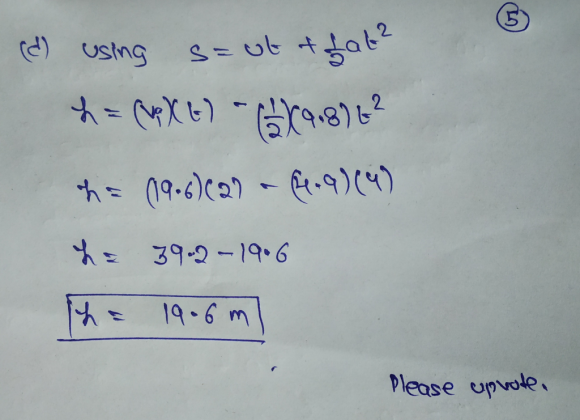 5
(d) using s = ut + 1/2 at²
h = (Vi)(t) - (1/2)(9.8) t²
h = (19.6)(2) - (4.9)(4)
h = 39.2 - 19.6
h = 19.6 m
Please upvote.